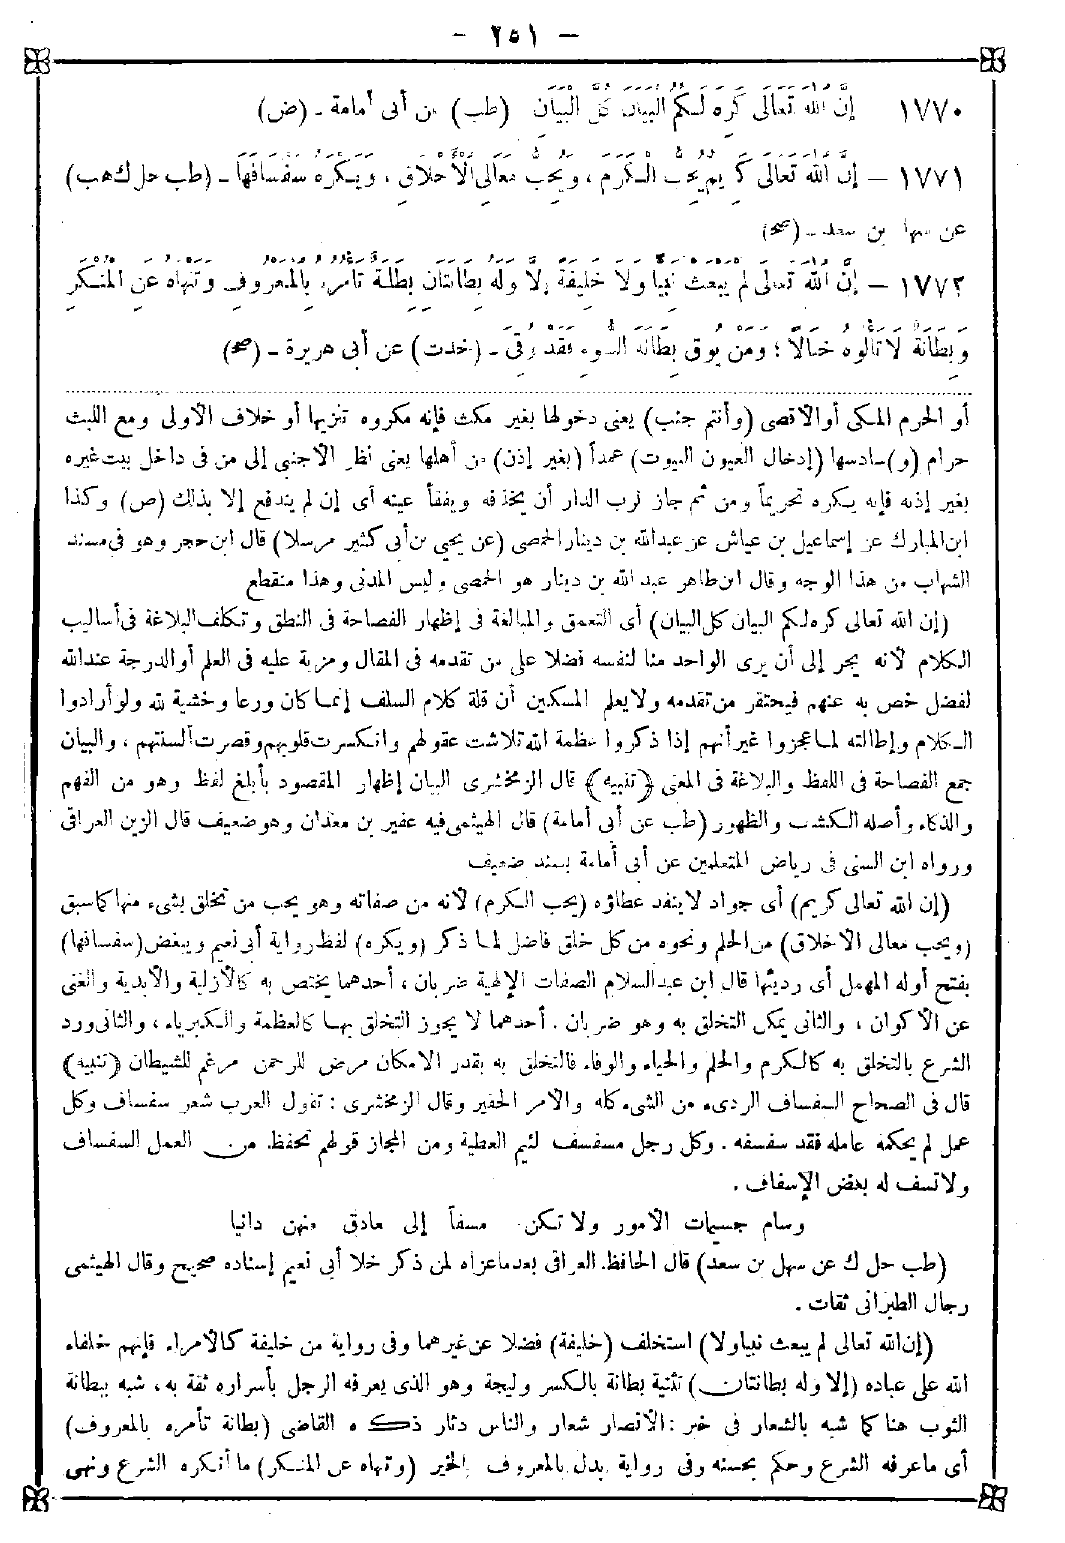 - ٢٥١ -
١٧٧٠ إِنَّ اللَّهَ تَعَالَى كَرِهَ لَكُمُ الْبَيَانَ كُلَّ الْبَيَانِ (طب) عن أبى أمامة - (ض)
١٧٧١ - إِنَّ اللَّهَ تَعَالَى كَرِيمٌ يُحِبُّ الْكَرَمَ ، وَيُحِبُّ مَعَالِيَ الْأَخْلَاقِ ، وَيَكْرَهُ سَفْسَافَهَا - (طب حل ك هب)
عن سهل بن سعد - (صح)
١٧٧٢ - إِنَّ اللَّهَ تَعَالَى لَمْ يَبْعَثْ نَبِيًّا وَلَا خَلِيفَةً إِلَّا وَلَهُ بِطَانَتَانِ بِطَانَةٌ تَأْمُرُهُ بِالْمَعْرُوفِ وَتَنْهَاهُ عَنِ الْمُنْكَرِ
وَبِطَانَةٌ لَا تَأْلُوهُ خَبَالًا ؛ وَمَنْ يُوقَ بِطَانَةَ السُّوءِ فَقَدْ وُقِيَ - (خدت) عن أبى هريرة - (صح)
أو الحرم المكى أو الاقصى (وأنتم جنب) يعنى دخولها بغير مكث فإنه مكروه تنزيها أو خلاف الأولى ومع اللبث
حرام (و) سادسها (إدخال العيون البيوت) عمداً (بغير إذن) من أهلها يعنى نظر الأجنبى إلى من فى داخل بيت غيره
بغير إذنه فإنه يكره تحريماً ومن ثم جاز لرب الدار أن يخذفه ويفقأ عينه أى إن لم يندفع إلا بذلك (ص) وكذا
ابن المبارك عن إسماعيل بن عياش عن عبدالله بن دينار الحمصى (عن يحيى بن أبى كثير مرسلا) قال ابن حجر وهو فى مسند
الشهاب من هذا الوجه وقال ابن طاهر عبد الله بن دينار هو الحمصى وليس المدنى وهذا منقطع
(إن الله تعالى كره لكم البيان كل البيان) أى التعمق والمبالغة فى إظهار الفصاحة فى النطق وتكلف البلاغة فى أساليب
الكلام لأنه يجر إلى أن يرى الواحد منا لنفسه فضلا على من تقدمه فى المقال ومزية عليه فى العلم أو الدرجة عند الله
لفضل خص به عنهم فيحتقر من تقدمه ولا يعلم المسكين أن قلة كلام السلف إنما كان ورعا وخشية لله ولو أرادوا
الكلام وإطالته لما عجزوا غير أنهم إذا ذكروا عظمة الله تلاشت عقولهم وانكسرت قلوبهم وقصرت ألسنتهم ، والبيان
جمع الفصاحة فى اللفظ والبلاغة فى المعنى (تنبيه) قال الزمخشرى البيان إظهار المقصود بأبلغ لفظ وهو من الفهم
والذكاء وأصله الكشف والظهور (طب عن أبى أمامة) قال الهيثمى فيه عفير بن معدان وهو ضعيف قال الزين العراقى
ورواه ابن السنى فى رياض المتعلمين عن أبى أمامة بسند ضعيف
(إن الله تعالى كريم) أى جواد لا ينفد عطاؤه (يحب الكرم) لأنه من صفاته وهو يحب من تخلق بشىء منها كما سبق
(ويحب معالى الأخلاق) من الحلم ونحوه من كل خلق فاضل لما ذكر (ويكره) لفظ رواية أبى نعيم ويبغض (سفسافها)
بفتح أوله المهمل أى رديئها قال ابن عبد السلام الصفات الإلهية ضربان ، أحدهما يختص به كالأزلية والأبدية والغنى
عن الأكوان ، والثانى يمكن التخلق به وهو ضربان . أحدهما لا يجوز التخلق بها كالعظمة والكبرياء ، والثانى ورد
الشرع بالتخلق به كالكرم والحلم والحياء والوفاء فالتخلق به بقدر الامكان مرض للرحمن مرغم للشيطان (تنبيه)
قال فى الصحاح السفساف الردىء من الشىء كله والامر الحقير وقال الزمخشرى : تقول العرب شعر سفساف وكل
عمل لم يحكمه عامله فقد سفسفه . وكل رجل مسفسف لئيم العطية ومن المجاز قولهم تحفظ من العمل السفساف
ولا تسف له بعض الإسفاف .
وسام جسيمات الأمور ولا تكن مسفاً إلى مادق منهن دانيا
(طب حل ك عن سهل بن سعد) قال الحافظ العراقى بعد ما عزاه لمن ذكر خلا أبى نعيم إسناده صحيح وقال الهيثمى
رجال الطبرانى ثقات .
(إن الله تعالى لم يبعث نبيا ولا) استخلف (خليفة) فضلا عن غيرهما وفى رواية من خليفة كالأمراء فإنهم خلفاء
الله على عباده (إلا وله بطانتان) تثنية بطانة بالكسر وليجة وهو الذى يعرفه الرجل بأسراره ثقة به ، شبه ببطانة
الثوب هنا كما شبه بالشعار فى خبر : الأنصار شعار والناس دثار ذكره القاضى (بطانة تأمره بالمعروف)
أى ما عرفه الشرع وحكم بحسنه وفى رواية بدل بالمعروف بالخير (وتنهاه عن المنكر) ما أنكره الشرع ونهى